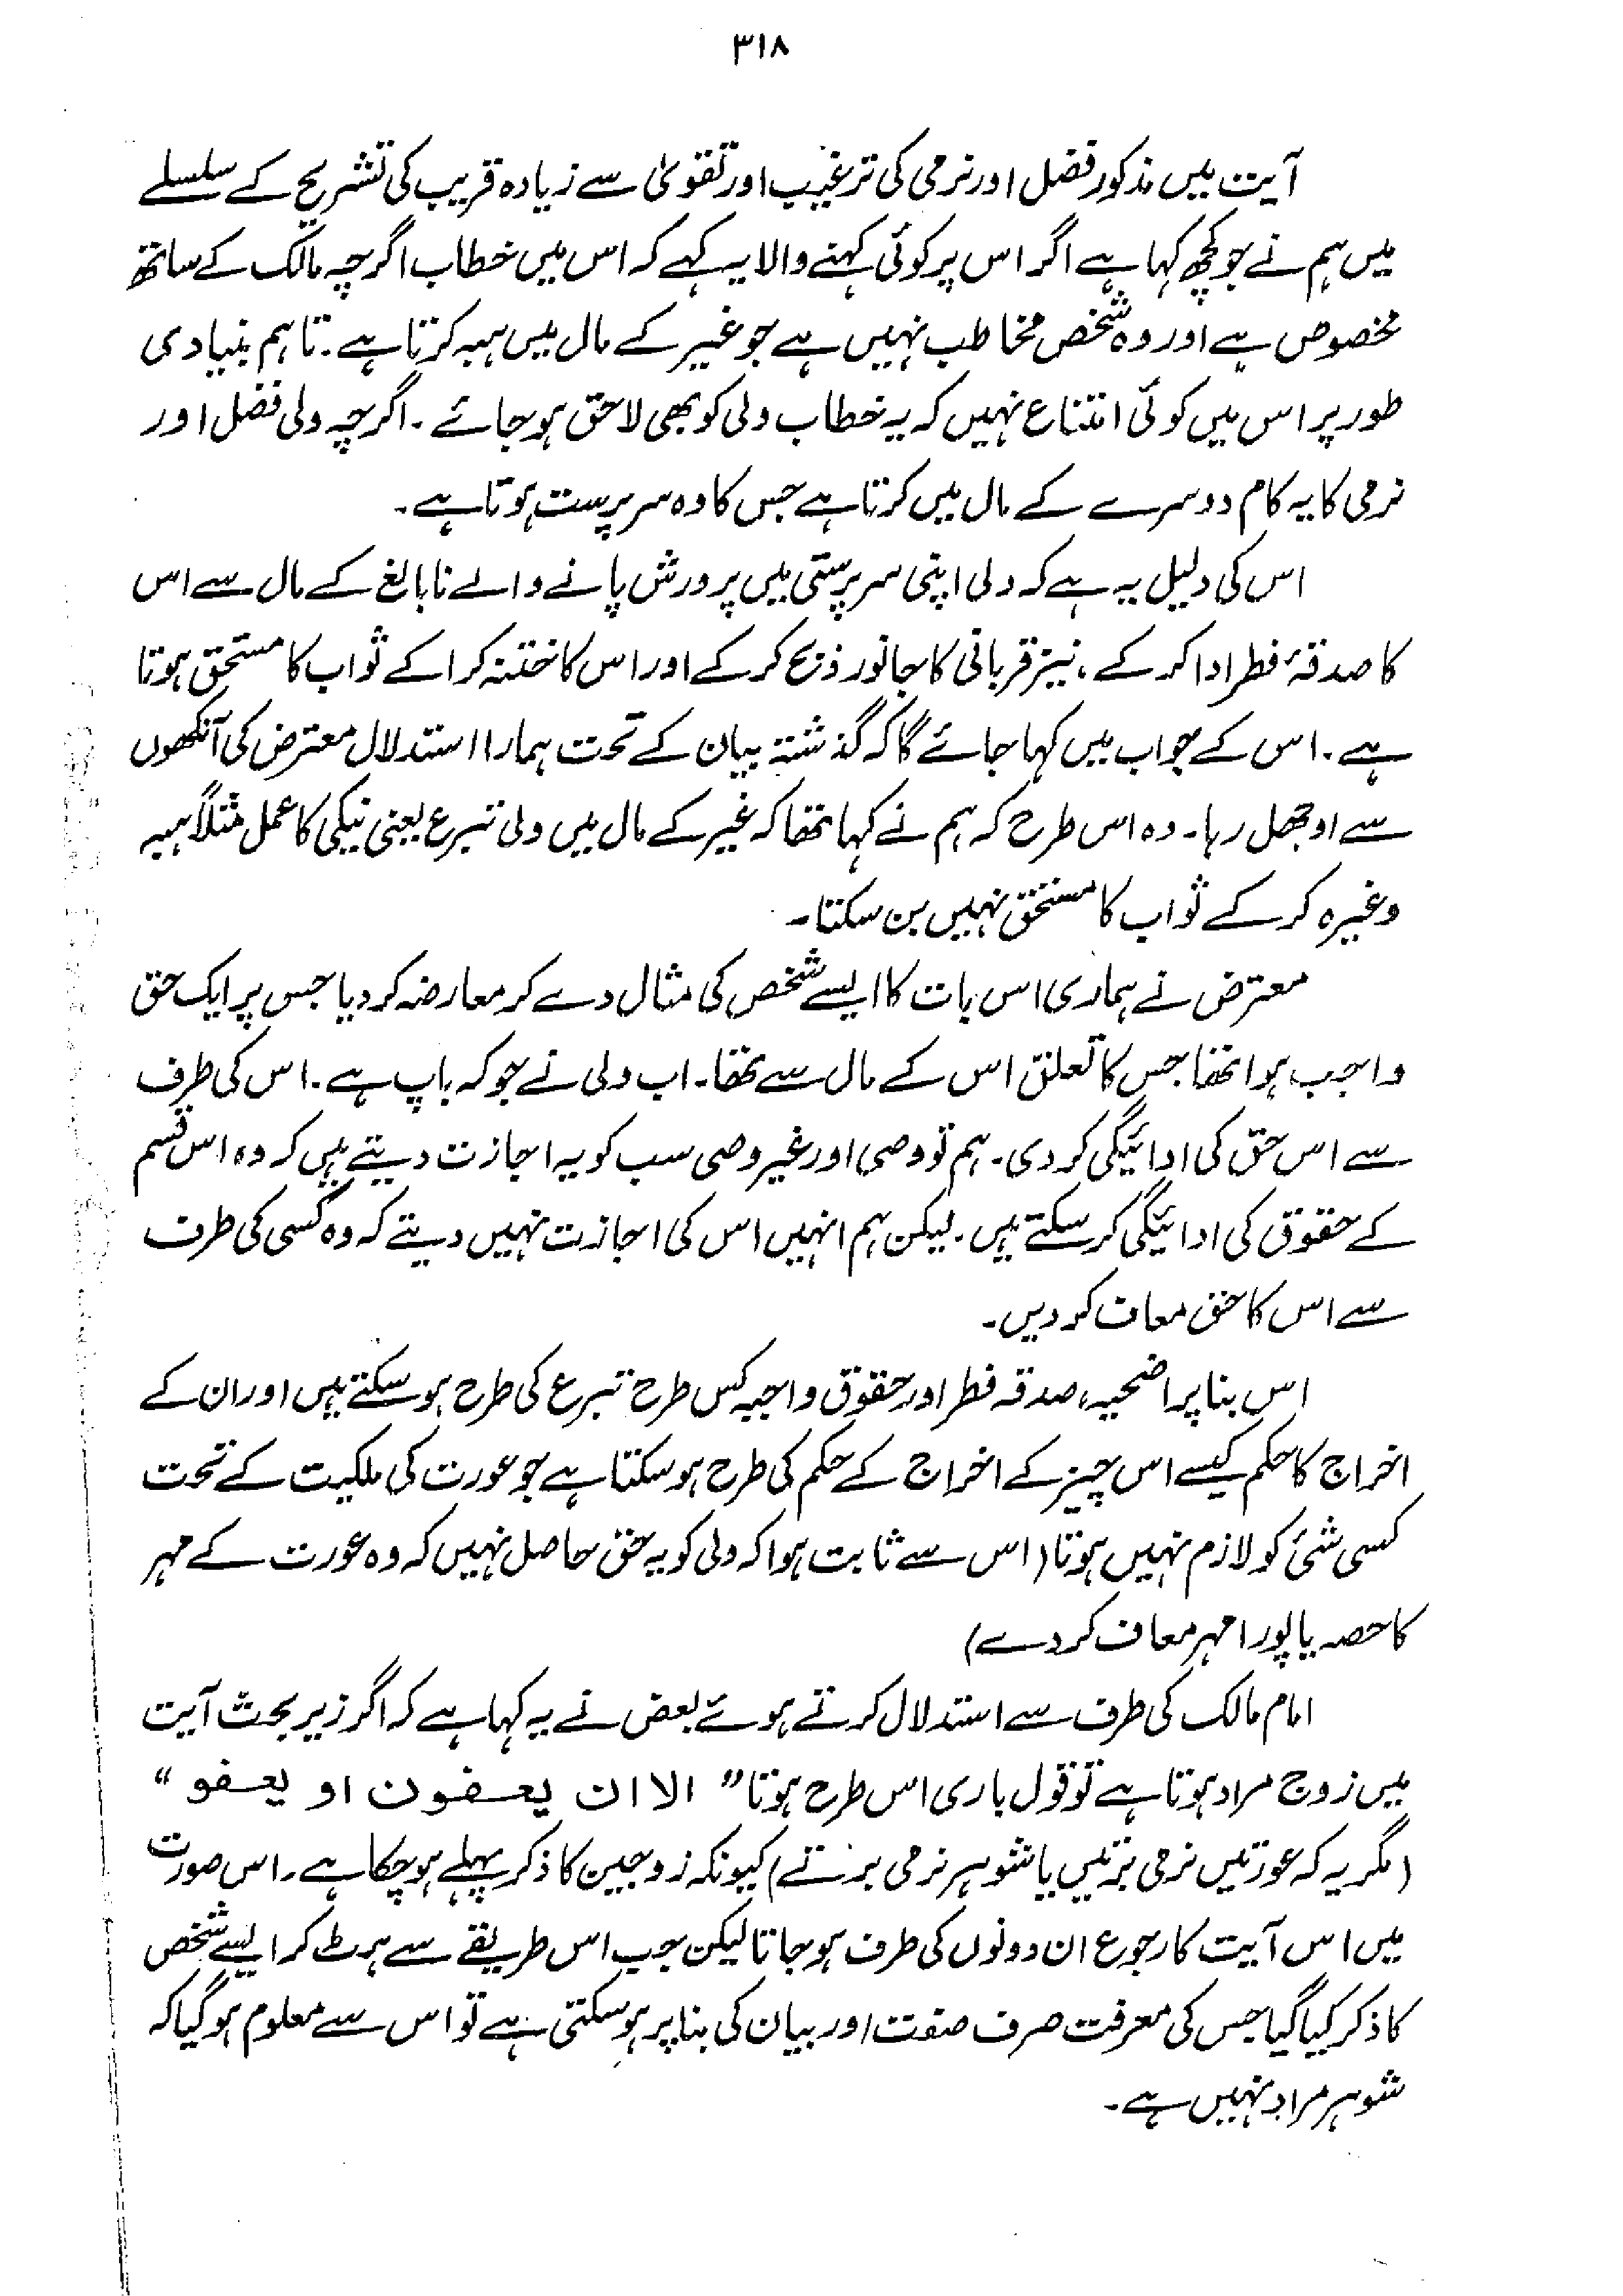 ۳۱۸
آیت میں مذکور فضل اور نرمی کی ترغیب اور تقویٰ سے زیادہ قریب کی تشریح کے سلسلے
میں ہم نے جو کچھ کہا ہے اگر اس پر کوئی کہنے والا یہ کہے کہ اس میں خطاب اگرچہ مالک کے ساتھ
مخصوص ہے اور وہ شخص مخاطب نہیں ہے جو غیر کے مال میں ہبہ کرتا ہے۔ تاہم بنیادی
طور پر اس میں کوئی امتناع نہیں کہ یہ خطاب ولی کو بھی لاحق ہو جائے۔ اگرچہ ولی فضل اور
نرمی کا یہ کام دوسرے کے مال میں کرتا ہے جس کا وہ سرپرست ہوتا ہے۔
اس کی دلیل یہ ہے کہ ولی اپنی سرپرستی میں پرورش پانے والے نابالغ کے مال سے اس
کا صدقۂ فطر ادا کر کے، نیز قربانی کا جانور ذبح کر کے اور اس کا ختنہ کرا کے ثواب کا مستحق ہوتا
ہے۔ اس کے جواب میں کہا جائے گا کہ گذشتہ بیان کے تحت ہمارا استدلال معترض کی آنکھوں
سے اوجھل رہا۔ وہ اس طرح کہ ہم نے کہا تھا کہ غیر کے مال میں ولی تبرع یعنی نیکی کا عمل مثلاً ہبہ
وغیرہ کر کے ثواب کا مستحق نہیں بن سکتا۔
معترض نے ہماری اس بات کا ایسے شخص کی مثال دے کر معارضہ کر دیا جس پر ایک حق
واجب ہوا تھا جس کا تعلق اس کے مال سے تھا۔ اب ولی نے جو کہ باپ ہے۔ اس کی طرف
سے اس حق کی ادائیگی کر دی۔ ہم تو وصی اور غیر وصی سب کو یہ اجازت دیتے ہیں کہ وہ اس قسم
کے حقوق کی ادائیگی کر سکتے ہیں۔ لیکن ہم انہیں اس کی اجازت نہیں دیتے کہ وہ کسی کی طرف
سے اس کا حق معاف کر دیں۔
اس بنا پر اضحیہ، صدقہ فطر اور حقوق واجبہ کس طرح تبرع کی طرح ہو سکتے ہیں اور ان کے
اخراج کا حکم کیسے اس چیز کے اخراج کے حکم کی طرح ہو سکتا ہے جو عورت کی ملکیت کے تحت
کسی شئ کو لازم نہیں ہوتا (اس سے ثابت ہوا کہ ولی کو یہ حق حاصل نہیں کہ وہ عورت کے مہر
کا حصہ یا پورا مہر معاف کر دے)
امام مالک کی طرف سے استدلال کرتے ہوئے بعض نے یہ کہا ہے کہ اگر زیر بحث آیت
میں زوج مراد ہوتا ہے تو قول باری اس طرح ہوتا ”الا ان یعفون او یعفو“
(مگر یہ کہ عورتیں نرمی برتیں یا شوہر نرمی برتے) کیونکہ زوجین کا ذکر پہلے ہو چکا ہے۔ اس صورت
میں اس آیت کا رجوع ان دونوں کی طرف ہو جاتا لیکن جب اس طریقے سے ہٹ کر ایسے شخص
کا ذکر کیا گیا جس کی معرفت صرف صفت اور بیان کی بنا پر ہو سکتی ہے تو اس سے معلوم ہو گیا کہ
شوہر مراد نہیں ہے۔